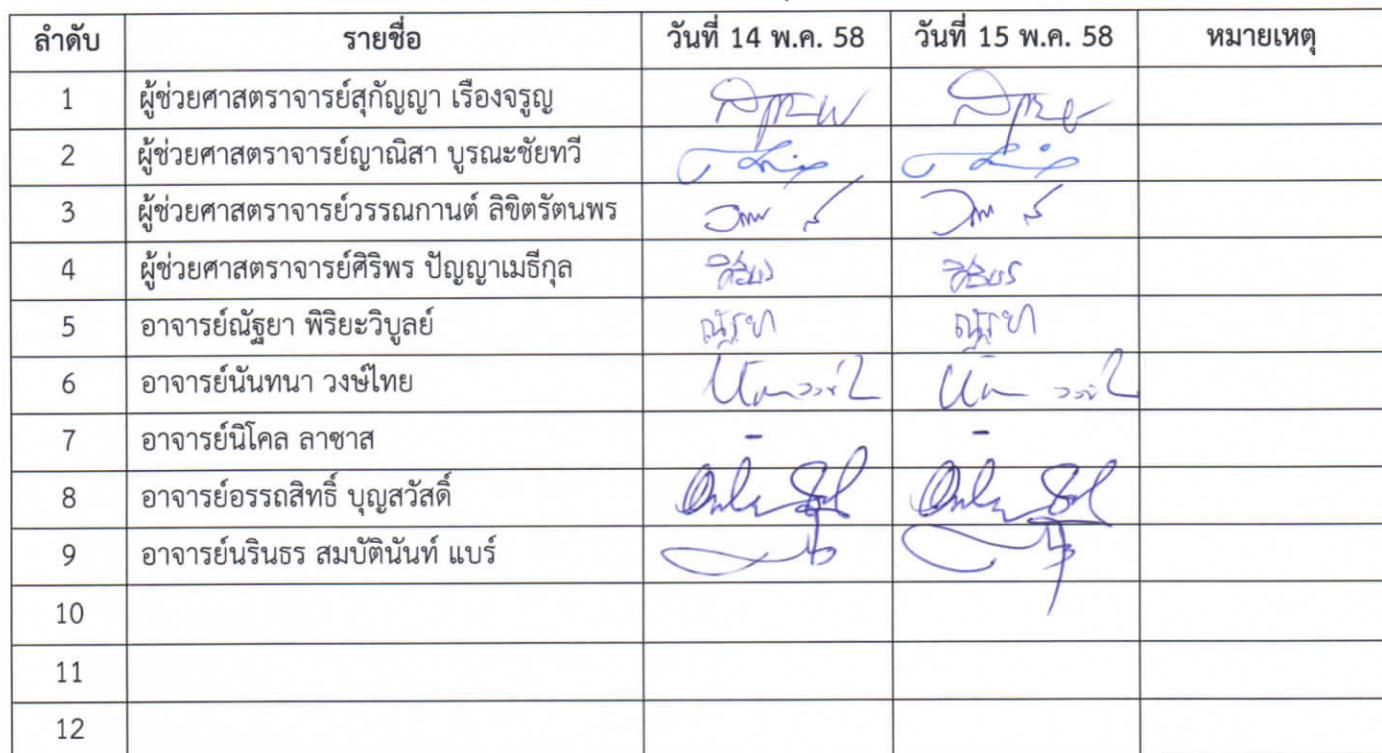 ลำดับ รายชื่อ วันที่ 14 พ.ค. 58 วันที่ 15 พ.ค. 58 หมายเหตุ
1 ผู้ช่วยศาสตราจารย์สุกัญญา เรืองจรูญ
2 ผู้ช่วยศาสตราจารย์ญาณิสา บูรณะชัยทวี
3 ผู้ช่วยศาสตราจารย์วรรณกานต์ ลิขิตรัตนพร
4 ผู้ช่วยศาสตราจารย์ศิริพร ปัญญาเมธีกุล ศิริพร ศิริพร
5 อาจารย์ณัฐยา พิริยะวิบูลย์ ณัฐยา ณัฐยา
6 อาจารย์นันทนา วงษ์ไทย
7 อาจารย์นิโคล ลาซาส - -
8 อาจารย์อรรถสิทธิ์ บุญสวัสดิ์
9 อาจารย์นรินธร สมบัตินันท์ แบร์
10
11
12